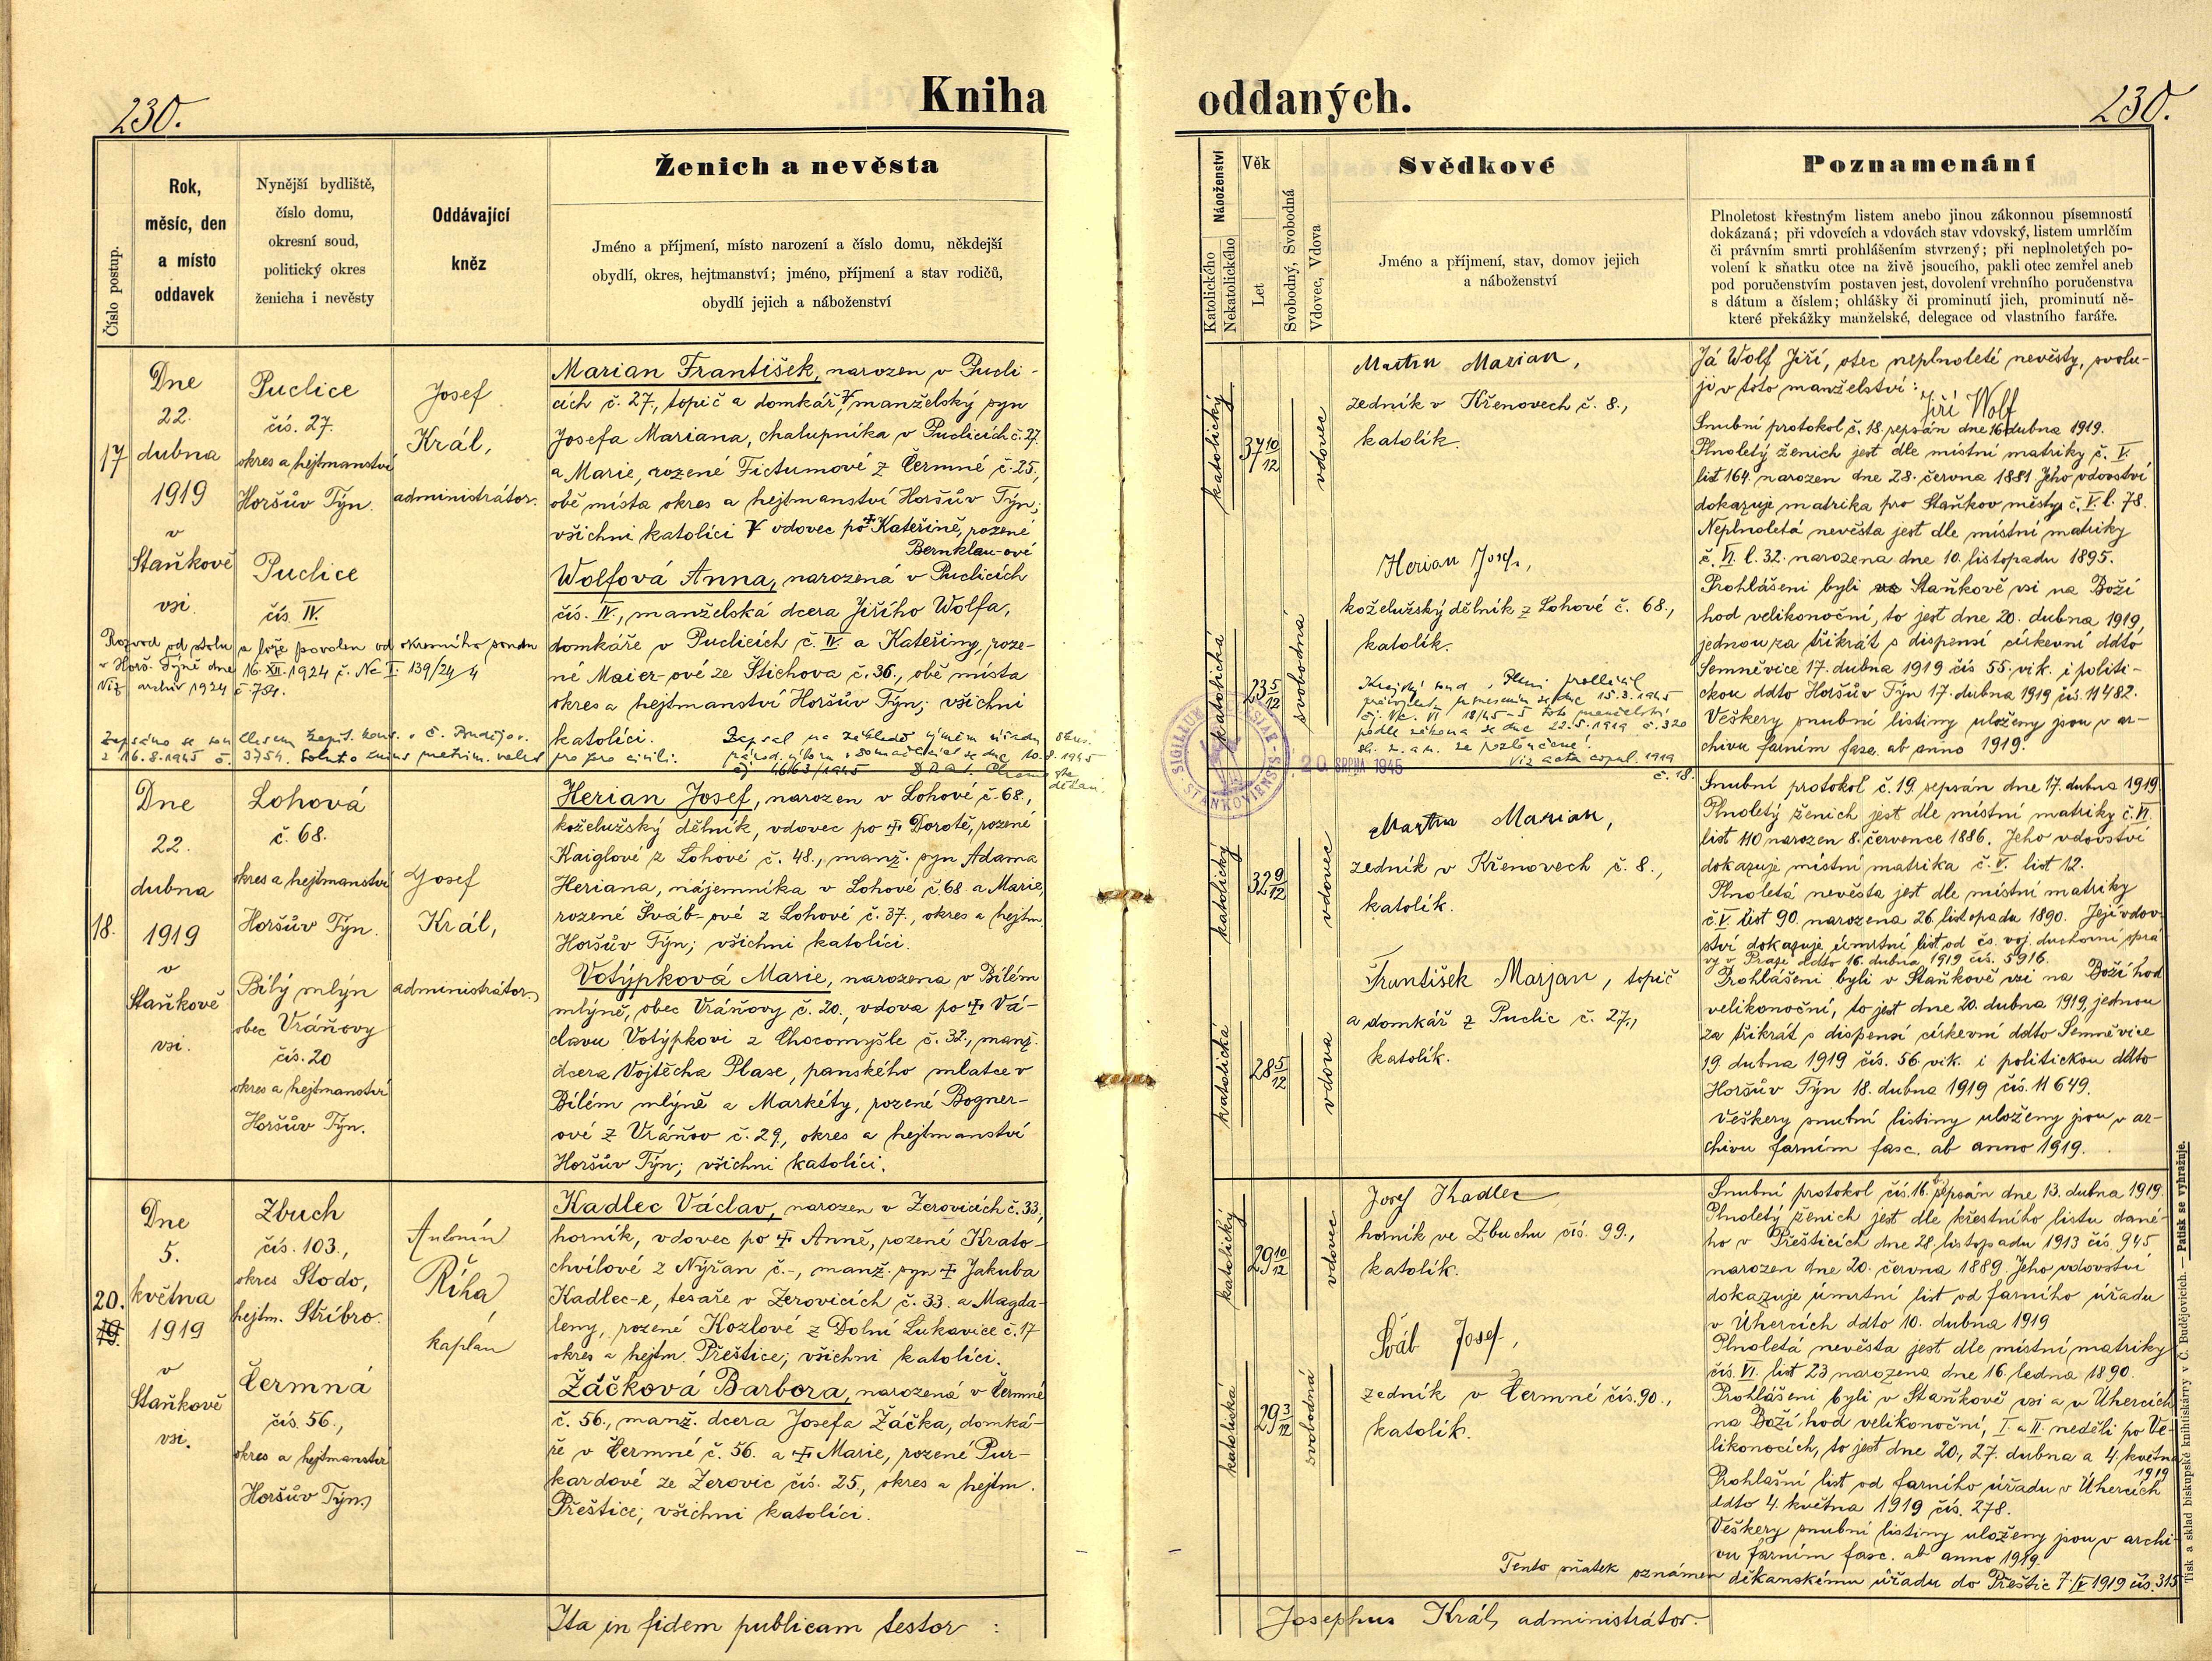 230.
Kniha
oddaných.
230.
Číslo postup.
Rok,
měsíc, den
a místo
oddavek
Nynější bydliště,
číslo domu,
okresní soud,
politický okres
ženicha i nevěsty
Oddávající
kněz
Ženich a nevěsta
Jméno a příjmení, místo narození a číslo domu, někdejší
obydlí, okres, hejtmanství; jméno, příjmení a stav rodičů,
obydlí jejich a náboženství
Náboženství
Katolického
Nekatolického
Věk
Let
Svobodný, Svobodná
Vdovec, Vdova
Svědkové
Jméno a příjmení, stav, domov jejich
a náboženství
Poznamenání
Plnoletost křestným listem anebo jinou zákonnou písemností
dokázaná; při vdovcích a vdovách stav vdovský, listem umrlčím
či právním smrti prohlášením stvrzený; při neplnoletých po-
volení k sňatku otce na živě jsoucího, pakli otec zemřel aneb
pod poručenstvím postaven jest, dovolení vrchního poručenstva
s dátum a číslem; ohlášky či prominutí jich, prominutí ně-
které překážky manželské, delegace od vlastního faráře.
17
Dne
22.
dubna
1919
v
Staňkově
vsi.
Puclice
čís. 27.
okres a hejtmanství
Horšův Týn.
Puclice
čís. IV.
Josef
Král,
administrátor.
Marian František, narozen v Pucli-
cích č. 27., topič a domkář, manželský syn
Josefa Mariana, chalupníka v Puclicích č. 27.
a Marie, rozené Fictumové z Čermné č. 25,
obě místa okres a hejtmanství Horšův Týn;
všichni katolíci V vdovec po ‡ Kateřině, rozené
Bernklau-ové
Wolfová Anna, narozená v Puclicích
čís. IV., manželská dcera Jiřího Wolfa,
domkáře v Puclicích č. IV a Kateřiny, roze-
né Maier-ové ze Stichova č. 36., obě místa
okres a hejtmanství Horšův Týn; všichni
katolíci.
Rozvod od stolu a lože povolen od okresního soudu
v Horš. Týně dne 16. XII. 1924 č. Nc I. 139/24/4
Viz archiv 1924 č. 784.
katolický
37 10/12
vdovec
katolická
23 5/12
svobodná
Martin Marian,
zedník v Křenovech č. 8.,
katolík.
Herian Josef,
koželužský dělník z Lohové č. 68.,
katolík.
Krajský soud v Plzni prohlásil
dne 15.3.1945
toto manželství
podle zákona ze dne 22.5.1919 č. 320
sb. z. a n. za rozloučené.
Viz acta copul. 1919
č. 18.
20. SRPNA 1945
Já Wolf Jiří, otec neplnoleté nevěsty, svolu-
ji v toto manželství:
Jiří Wolf
Snubní protokol č. 18. sepsán dne 16. dubna 1919.
Plnoletý ženich jest dle místní matriky č. V.
list 164. narozen dne 28. června 1881 Jeho vdovství
dokazuje matrika pro Staňkov městys č. V. l. 78.
Neplnoletá nevěsta jest dle místní matriky
č. VI. l. 32. narozena dne 10. listopadu 1895.
Prohlášeni byli ve Staňkově vsi na Boží
hod velikonoční, to jest dne 20. dubna 1919,
jednou za třikrát s dispensí církevní ddto
Semněvice 17. dubna 1919 čís 55. vik. i politi-
ckou ddto Horšův Týn 17. dubna 1919 čís. 11482.
Veškery snubní listiny uloženy jsou v ar-
chivu farním fasc. ab anno 1919.
18.
Dne
22.
dubna
1919
v
Staňkově
vsi.
Lohová
č. 68.
okres a hejtmanství
Horšův Týn.
Bílý mlýn
obec Vráňovy
čís. 20
okres a hejtmanství
Horšův Týn.
Josef
Král,
administrátor.
Herian Josef, narozen v Lohové č. 68.,
koželužský dělník, vdovec po ‡ Dorotě, rozené
Kaiglové z Lohové č. 48., manž. syn Adama
Heriana, nájemníka v Lohové č. 68 a Marie,
rozené Šváb-ové z Lohové č. 37., okres a hejtm.
Horšův Týn; všichni katolíci.
Votýpková Marie, narozena v Bílém
mlýně, obec Vráňovy č. 20., vdova po ‡ Vá-
clavu Votýpkovi z Chocomyšle č. 32., manž.
dcera Vojtěcha Plase, panského mlatce v
Bílém mlýně a Markéty, rozené Bogner-
ové z Vráňov č. 29, okres a hejtmanství
Horšův Týn; všichni katolíci.
katolický
32 9/12
vdovec
katolická
28 5/12
vdova
Martin Marian,
zedník v Křenovech č. 8.,
katolík.
František Marjan, topič
a domkář z Puclic č. 27.,
katolík.
Snubní protokol č. 19. sepsán dne 17. dubna 1919.
Plnoletý ženich jest dle místní matriky č. VI.
list 110 narozen 8. července 1886. Jeho vdovství
dokazuje místní matrika č. V. list 12.
Plnoletá nevěsta jest dle místní matriky
č. V. list 90. narozena 26. listopadu 1890. Její vdov-
ství dokazuje úmrtní list od čs. voj. duchovní sprá-
vy v Praze ddto 16. dubna 1919 čís. 5916.
Prohlášeni byli v Staňkově vsi na Boží hod
velikonoční, to jest dne 20. dubna 1919, jednou
za třikrát s dispensí církevní ddto Semněvice
19. dubna 1919 čís. 56 vik. i politickou ddto
Horšův Týn 18. dubna 1919 čís. 11649.
Veškery snubní listiny uloženy jsou v ar-
chivu farním fasc. ab anno 1919.
20.
19.
Dne
5.
května
1919
v
Staňkově
vsi.
Zbuch
čís. 103.,
okres Stodo,
hejtm. Stříbro.
Čermná
čís. 56.,
okres a hejtmanství
Horšův Týn.
Antonín
Říha,
kaplan
Kadlec Václav, narozen v Žerovicích č. 33.,
horník, vdovec po ‡ Anně, rozené Krato-
chvílové z Nýřan č. -, manž. syn ‡ Jakuba
Kadlec-e, tesaře v Žerovicích č. 33. a Magda-
leny, rozené Kozlové z Dolní Lukavice č. 17
okres a hejtm. Přeštice; všichni katolíci.
Žáčková Barbora, narozená v Čermné
č. 56., manž. dcera Josefa Žáčka, domká-
ře v Čermné č. 56. a ‡ Marie, rozené Pur-
kardové ze Žerovic čís. 25., okres a hejtm.
Přeštice; všichni katolíci.
katolický
29 10/12
vdovec
katolická
29 3/12
svobodná
Josef Kadlec
horník ve Zbuchu čís. 99.,
katolík.
Šváb Josef,
zedník v Čermné čís. 90.,
katolík.
Snubní protokol čís. 16. sepsán dne 13. dubna 1919.
Plnoletý ženich jest dle křestního listu dané-
ho v Přešticích dne 28. listopadu 1913 čís. 945
narozen dne 20. června 1889. Jeho vdovství
dokazuje úmrtní list od farního úřadu
v Úhercích ddto 10. dubna 1919
Plnoletá nevěsta jest dle místní matriky
čís. VI. list 23 narozena dne 16. ledna 1890.
Prohlášeni byli v Staňkově vsi a v Úhercích
na Boží hod velikonoční, I. a II. neděli po Ve-
likonocích, to jest dne 20., 27. dubna a 4. května
1919
Prohlašní list od farního úřadu v Úhercích
ddto 4. května 1919 čís. 278.
Veškery snubní listiny uloženy jsou v archi-
vu farním fasc. ab anno 1919.
Tento sňatek oznámen děkanskému úřadu do Přeštic 7./V 1919 čís. 315
Ita in fidem publicam testor :
Josephus Král, administrátor.
Tisk a sklad biskupské knihtiskárny v Č. Budějovicích. — Patisk se vyhražuje.